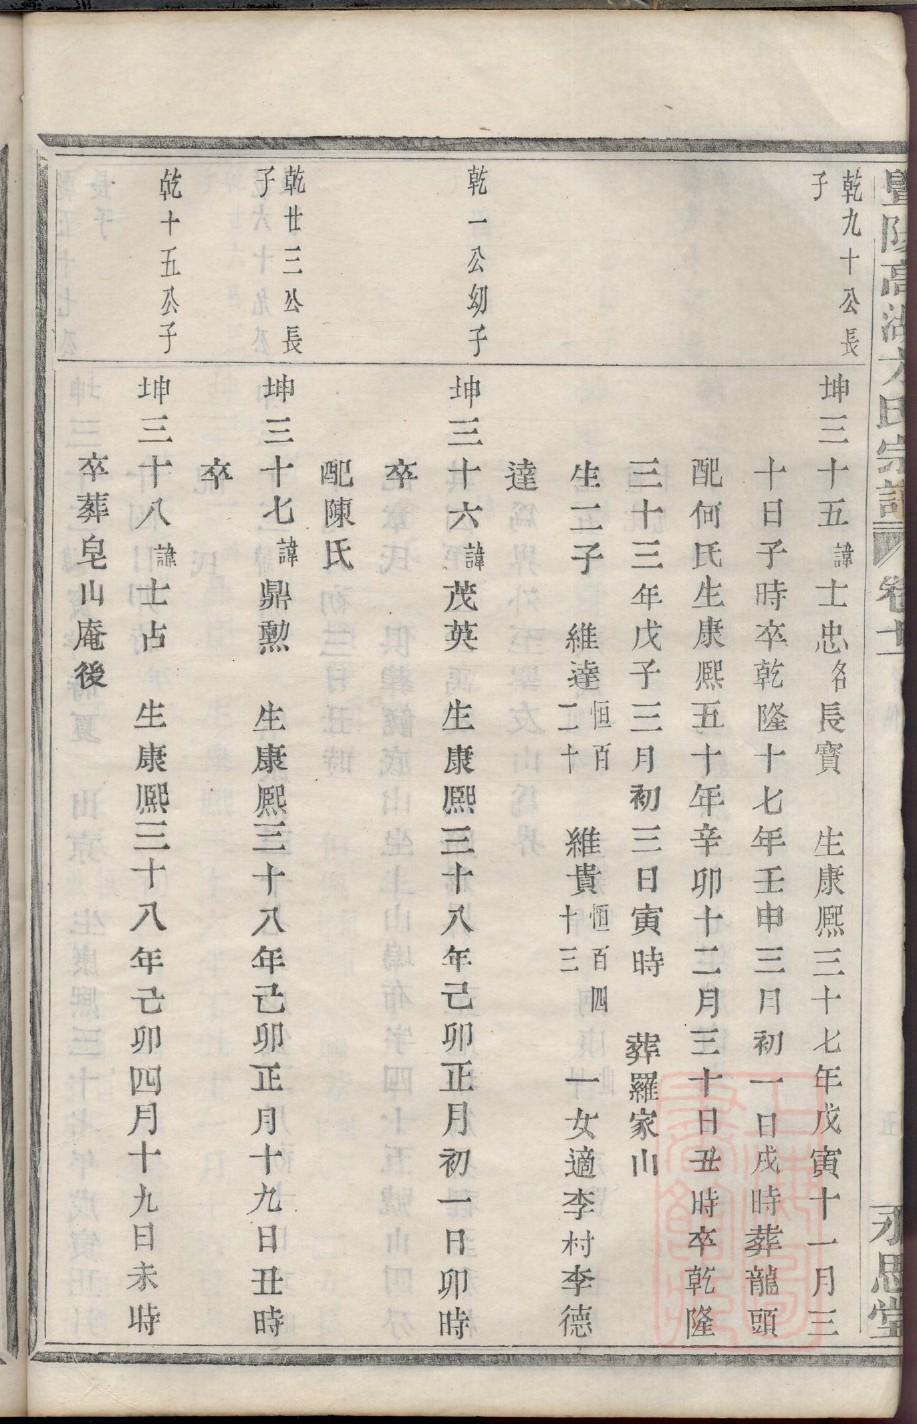 暨陽高湖方氏宗譜 卷十 永思堂
乾九十公長
子
坤三十五諱士忠名長寶 生康熙三十七年戊寅十一月三
十日子時卒乾隆十七年壬申三月初一日戌時葬龍頭
配何氏生康熙五十年辛卯十二月三十日丑時卒乾隆
三十三年戊子三月初三日寅時 葬羅家山
生二子 維達恒百二十 維貴恒百四十三 一女適李村李德
達
乾一公幼子
坤三十六諱茂英 生康熙三十八年己卯正月初一日卯時
卒
配陳氏
乾廿三公長
子
坤三十七諱鼎勲 生康熙三十八年己卯正月十九日丑時
卒
乾十五公子
坤三十八諱士占 生康熙三十八年己卯四月十九日未時
卒葬皂山庵後